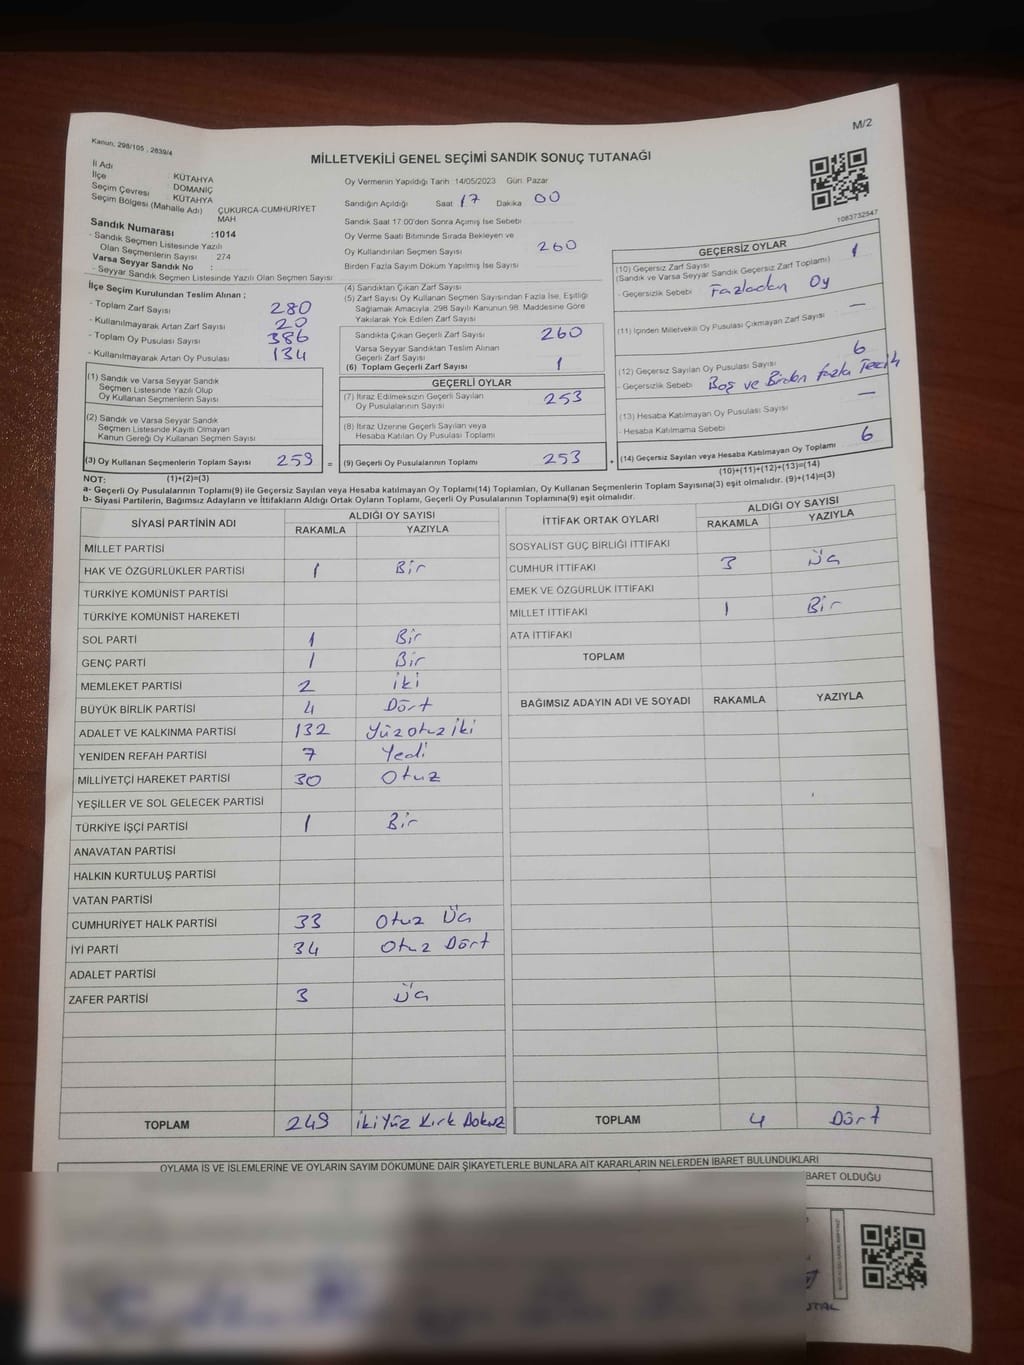 M/2
Kanun, 298/105 , 2839/4
MİLLETVEKİLİ GENEL SEÇİMİ SANDIK SONUÇ TUTANAĞI
1083732547
İl Adı : KÜTAHYA
İlçe : DOMANİÇ
Seçim Çevresi : KÜTAHYA
Seçim Bölgesi (Mahalle Adı) ÇUKURCA-CUMHURİYET MAH
Sandık Numarası :1014
- Sandık Seçmen Listesinde Yazılı
Olan Seçmenlerin Sayısı 274
Varsa Seyyar Sandık No :
- Seyyar Sandık Seçmen Listesinde Yazılı Olan Seçmen Sayısı
Oy Vermenin Yapıldığı Tarih :14/05/2023 Gün: Pazar
Sandığın Açıldığı Saat 17 Dakika 00
Sandık Saat 17:00'den Sonra Açımış İse Sebebi
Oy Verme Saati Bitiminde Sırada Bekleyen ve
Oy Kullandırılan Seçmen Sayısı 260
Birden Fazla Sayım Döküm Yapılmış İse Sayısı
İlçe Seçim Kurulundan Teslim Alınan ;
- Toplam Zarf Sayısı 280
- Kullanılmayarak Artan Zarf Sayısı 20
- Toplam Oy Pusulası Sayısı 386
- Kullanılmayarak Artan Oy Pusulası 134
(1) Sandık ve Varsa Seyyar Sandık
Seçmen Listesinde Yazılı Olup
Oy Kullanan Seçmenlerin Sayısı
(2) Sandık ve Varsa Seyyar Sandık
Seçmen Listesinde Kayıtlı Olmayan
Kanun Gereği Oy Kullanan Seçmen Sayısı
(3) Oy Kullanan Seçmenlerin Toplam Sayısı 259 =
(4) Sandıktan Çıkan Zarf Sayısı
(5) Zarf Sayısı Oy Kullanan Seçmen Sayısından Fazla İse, Eşitliği
Sağlamak Amacıyla; 298 Sayılı Kanunun 98. Maddesine Göre
Yakılarak Yok Edilen Zarf Sayısı
Sandıkta Çıkan Geçerli Zarf Sayısı 260
Varsa Seyyar Sandıktan Teslim Alınan
Geçerli Zarf Sayısı
(6) Toplam Geçerli Zarf Sayısı 1
GEÇERLİ OYLAR
(7) İtiraz Edilmeksizin Geçerli Sayılan
Oy Pusulalarının Sayısı 253
(8) İtiraz Üzerine Geçerli Sayılan veya
Hesaba Katılan Oy Pusulası Toplamı
(9) Geçerli Oy Pusulalarının Toplamı 253 +
GEÇERSİZ OYLAR
(10) Geçersiz Zarf Sayısı
(Sandık ve Varsa Seyyar Sandık Geçersiz Zarf Toplamı) 1
- Geçersizlik Sebebi Fazladan Oy
(11) İçinden Milletvekili Oy Pusulası Çıkmayan Zarf Sayısı —
(12) Geçersiz Sayılan Oy Pusulası Sayısı 6
- Geçersizlik Sebebi Boş ve Birden fazla Tercih
(13) Hesaba Katılmayan Oy Pusulası Sayısı —
- Hesaba Katılmama Sebebi
(14) Geçersiz Sayılan veya Hesaba Katılmayan Oy Toplamı 6
NOT: (1)+(2)=(3)
(10)+(11)+(12)+(13)=(14)
a- Geçerli Oy Pusulalarının Toplamı(9) ile Geçersiz Sayılan veya Hesaba katılmayan Oy Toplamı(14) Toplamları, Oy Kullanan Seçmenlerin Toplam Sayısına(3) eşit olmalıdır. (9)+(14)=(3)
b- Siyasi Partilerin, Bağımsız Adayların ve İttifakların Aldığı Ortak Oyların Toplamı, Geçerli Oy Pusulalarının Toplamına(9) eşit olmalıdır.
SİYASİ PARTİNİN ADI ALDIĞI OY SAYISI
RAKAMLA YAZIYLA
MİLLET PARTİSİ
HAK VE ÖZGÜRLÜKLER PARTİSİ 1 Bir
TÜRKİYE KOMÜNİST PARTİSİ
TÜRKİYE KOMÜNİST HAREKETİ
SOL PARTİ 1 Bir
GENÇ PARTİ 1 Bir
MEMLEKET PARTİSİ 2 iki
BÜYÜK BİRLİK PARTİSİ 4 Dört
ADALET VE KALKINMA PARTİSİ 132 Yüzotuziki
YENİDEN REFAH PARTİSİ 7 Yedi
MİLLİYETÇİ HAREKET PARTİSİ 30 Otuz
YEŞİLLER VE SOL GELECEK PARTİSİ
TÜRKİYE İŞÇİ PARTİSİ 1 Bir
ANAVATAN PARTİSİ
HALKIN KURTULUŞ PARTİSİ
VATAN PARTİSİ
CUMHURİYET HALK PARTİSİ 33 Otuz Üç
İYİ PARTİ 34 Otuz Dört
ADALET PARTİSİ
ZAFER PARTİSİ 3 Üç
TOPLAM 249 ikiYüz Kırk Dokuz
İTTİFAK ORTAK OYLARI ALDIĞI OY SAYISI
RAKAMLA YAZIYLA
SOSYALİST GÜÇ BİRLİĞİ İTTİFAKI
CUMHUR İTTİFAKI 3 Üç
EMEK VE ÖZGÜRLÜK İTTİFAKI
MİLLET İTTİFAKI 1 Bir
ATA İTTİFAKI
TOPLAM
BAĞIMSIZ ADAYIN ADI VE SOYADI RAKAMLA YAZIYLA
TOPLAM 4 Dört
OYLAMA İŞ VE İŞLEMLERİNE VE OYLARIN SAYIM DÖKÜMÜNE DAİR ŞİKAYETLERLE BUNLARA AİT KARARLARIN NELERDEN İBARET BULUNDUKLARI
BARET OLDUĞU